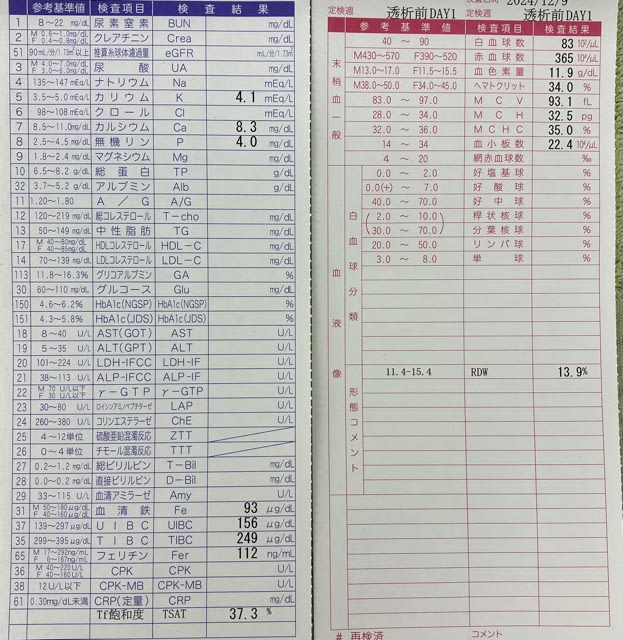 参考基準値 検査項目 検査 結果
1 8～22 mg/dL 尿素窒素 BUN mg/dL
2 M 0.6～1.0mg/dL F 0.4～0.8mg/dL クレアチニン Crea mg/dL
51 90mL/分/1.73㎡以上 推算糸球体濾過量 eGFR mL/分/1.73㎡
3 M 4.0～7.0mg/dL F 3.0～6.0mg/dL 尿酸 UA mg/dL
4 135～147 mEq/L ナトリウム Na mEq/L
5 3.5～5.0 mEq/L カリウム K 4.1 mEq/L
6 98～108 mEq/L クロール Cl mEq/L
7 8.5～11.0mg/dL カルシウム Ca 8.3 mg/dL
8 2.5～4.5 mg/dL 無機リン P 4.0 mg/dL
9 1.8～2.4 mg/dL マグネシウム Mg mg/dL
10 6.5～8.2 g/dL 総蛋白 TP g/dL
32 3.7～5.2 g/dL アルブミン Alb g/dL
11 1.20～1.80 A／G A/G
12 120～219 mg/dL 総コレステロール T－cho mg/dL
13 50～149 mg/dL 中性脂肪 TG mg/dL
17 M 40～80mg/dL F 40～85mg/dL HDLコレステロール HDL－C mg/dL
14 70～139 mg/dL LDLコレステロール LDL－C mg/dL
113 11.8～16.3% グリコアルブミン GA %
30 60～110 mg/dL グルコース Glu mg/dL
150 4.6～6.2% HbA1c(NGSP) HbA1c(NGSP) %
151 4.3～5.8% HbA1c(JDS) HbA1c(JDS) %
18 8～40 U/L AST(GOT) AST U/L
19 5～35 U/L ALT(GPT) ALT U/L
20 101～224 U/L LDH-IFCC LDH-IF U/L
21 38～113 U/L ALP-IFCC ALP-IF U/L
22 M 70 U/L以下 F 30 U/L以下 γ－GTP γ－GTP U/L
23 30～80 U/L ロイシンアミノペプチターゼ LAP U/L
24 260～380 U/L コリンエステラーゼ ChE U/L
25 4～12単位 硫酸亜鉛混濁反応 ZTT
26 0～4単位 チモール混濁反応 TTT
27 0.2～1.2 mg/dL 総ビリルビン T－Bil mg/dL
28 0.0～0.2 mg/dL 直接ビリルビン D－Bil mg/dL
29 33～115 U/L 血清アミラーゼ Amy U/L
31 M 50～180μg/dL 血清鉄 Fe 93 μg/dL
37 139～297μg/dL UIBC UIBC 156 μg/dL
35 299～395μg/dL TIBC TIBC 249 μg/dL
65 M 17～292ng/mL F 6～167ng/mL フェリチン Fer 112 ng/mL
36 M 40～220U/L F 40～160U/L CPK CPK U/L
38 12U/L以下 CPK-MB CPK-MB U/L
61 0.30mg/dL未満 CRP(定量) CRP mg/dL
Tf飽和度 TSAT 37.3 %
2024/12/9
定検週 透析前DAY1 定検週 透析前DAY1
参考基準値 検査項目 検査結果
末梢血一般
40 ～ 90 白血球数 83 10²/μL
M430～570 F390～520 赤血球数 365 10⁴/μL
M13.0～17.0 F11.5～15.5 血色素量 11.9 g/dL
M38.0～50.0 F34.0～45.0 ヘマトクリット 34.0 %
83.0 ～ 97.0 MCV 93.1 fL
28.0 ～ 34.0 MCH 32.5 pg
32.0 ～ 36.0 MCHC 35.0 %
14 ～ 34 血小板数 22.4 10⁴/μL
4 ～ 20 網赤血球数 ‰
血液像
白血球分類
0.0 ～ 2.0 好塩基球
0.0(+) ～ 7.0 好酸球
40.0 ～ 70.0 好中球
(2.0 ～ 10.0) 桿状核球
(30.0 ～ 70.0) 分葉核球
20.0 ～ 50.0 リンパ球
3.0 ～ 8.0 単球
11.4-15.4 RDW 13.9%
形態コメント
# 再検済 コメント